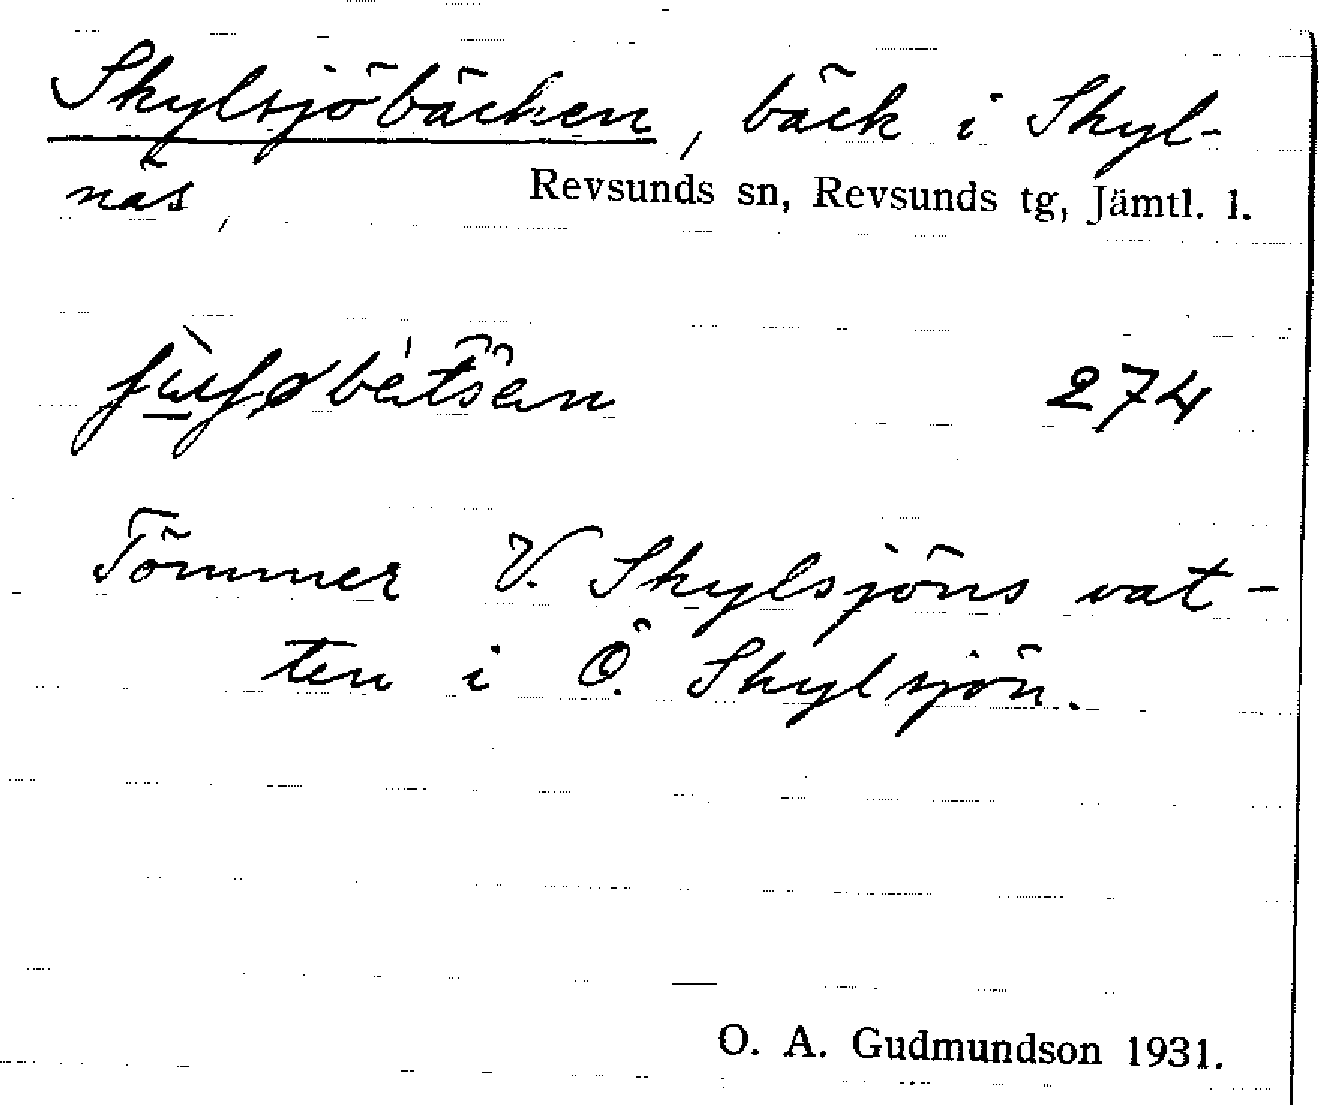 Skylsjöbäcken, bäck i Skyl-
näs,
Revsunds sn, Revsunds tg, Jämtl. l.
274
Tömmer V. Skylsjöns vat-
ten i Ö. Skylsjön.
O. A. Gudmundson 1931.